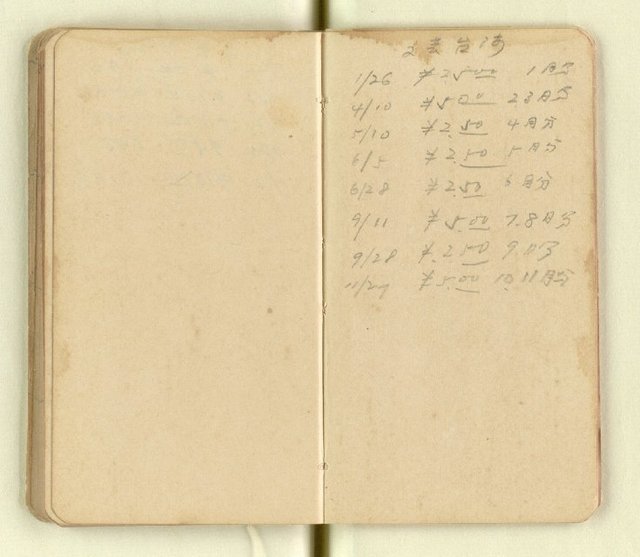 1/26 ¥2.500 1月分
4/10 ¥5.00 2.3月分
5/10 ¥2.50 4月分
6/5 ¥2.50 5月分
6/28 ¥2.50 6月分
9/11 ¥5.00 7.8月分
9/28 ¥2.50 9月分
11/27 ¥5.00 10.11月分